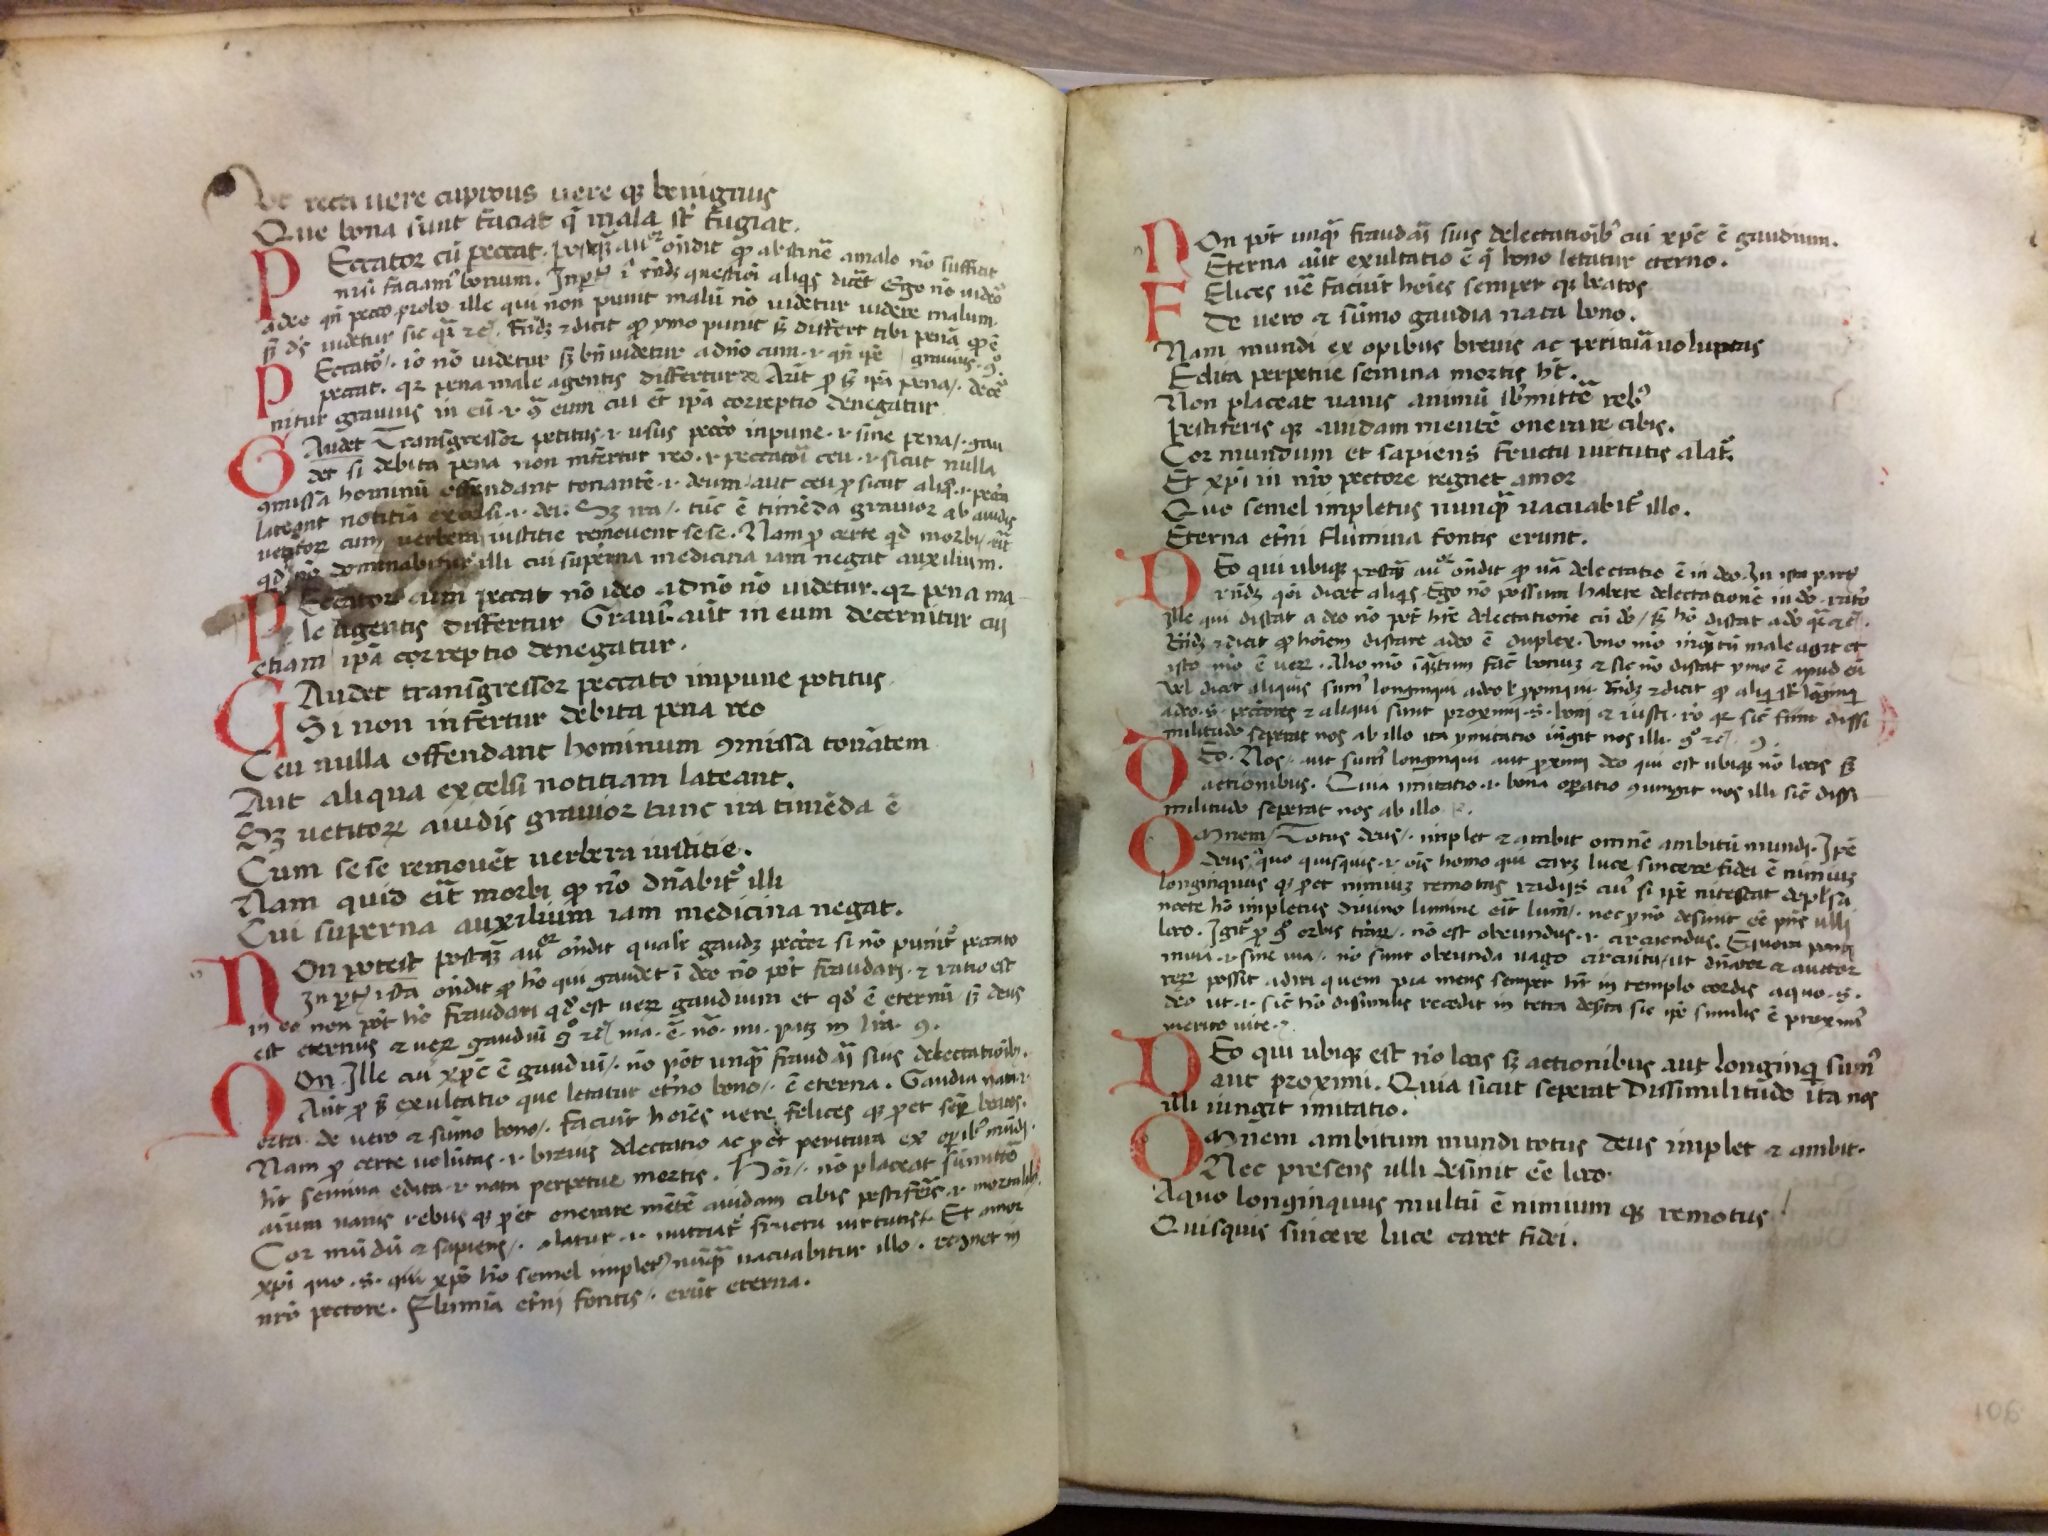 recti vere cupidus vere qz benignus
Que bona sunt faciat q̄ mala st fugiat.
PEccator cū peccat. postqz̄ auōr ōndit q̄ abstinē amalo nō sufficit
nisi faciam9 bonum. In ista questiōi aliqs dicet Ergo nō videō
adeo qn̄ pecco. probo ille qui non punit malū nō videtur videre malum.
sz ds videtur sic qr̄ zc. Rn̄dz z dicit q̄ ymo punit sz differt tibi penā q̄ ē
PEccator. iō nō videtur sz bn̄ videtur adn̄o cum. i. qn̄ ipē gravius.
peccat. qr pena male agentis differtur Aūt sz ipā pena. decer
nitur gravius in eū. i. eum cui et ipā correptio denegatur
GAudet Transgressor potitus. i. usus peccō inpune. i. sine pena. gau
det si debita pena non infertur reo. i. peccatori ceu. i. sicut nulla
9missa hominū offendant tonantē. i. deum. aut ceu sicut aliq̄. i. peccā
lateant notitiā excelsi. i. dei. Sz ira. tūc ē timēda gravior ab avidis
vetitorz cum verbera iustitie removent se se. Nam certe qd morbi erit
qd nō dominabitur illi cui superna medicina iam negat auxilium.
PEccator cum peccat nō ideo adn̄o nō videtur. qr pena ma
le agentis differtur Gravi9 aūt in eum decernitur cui
etiam ipā correptio denegatur.
GAudet transgressor peccato impune potitus
Si non infertur debita pena reo
Ceu nulla offendant hominum 9missa tonātem
Aut aliqua excelsi notitiam lateant.
Sz vetitorz avidis gravior tunc ira timēda ē
Cum se se removēt verbera iustitie.
Nam quid erit morbi q̄ nō dn̄abit illi
Cui superna auxilium iam medicina negat.
NOn potest postqz̄ auōr ōndit qualr gaudz peccōr si nō punitr peccato
In ista ōndit q̄ hō qui gaudet ī deo nō pōt fraudari. z ratio est
in eo non pōt hō fraudari qd est verz gaudium et qd ē eternū sz deus
est eternus z verz gaudiū zc. ma. ē. nō. mi. patz in lrā.
NOn. Ille cui xp̄c ē gaudiū. nō pōt unq̄ fraudari suis delectatiōib.
Aūt sz exultatio que letatur et̄no bono. ē eterna. Gaudia nata. i.
orta de vero z sūmo bono. faciūt hoīes vere felices qz et semp beatos.
Nam certe volūtas. i. brevis delectatio ac et peritura ex opib9 mūdi.
hr̄ semina edita. i. nata perpetue mortis. nō placeat sūmittē
aīum vanis rebus qz et onerare mētē avidam cibis pestiferis. i. mortalib.
Cor mūdū z sapiens. alatur. i. nutriatr fructu virtutis. Et amor
xp̄i quo. s. qui xp̄o hō semel impletr nūq̄ vacuabitur illo. regnet in
nrō pectore. Flumīa et̄ni fontis. erūt eterna.
NOn pōt unq̄ fraudari suis delectatiōib9 cui xp̄c ē gaudium.
Eterna aūt exultatio ē q̄ bono letatur eterno.
FElices vē faciūt hoīes semper qz beatos
De vero z sūmo gaudia nata bono.
Nam mundi ex opibus brevis ac peritūa voluptas
Edita perpetue semina mortis hr̄.
Non placeat vanis animū sb9mittē reb9
Pestiferis qz avidam mentē onerare cibis.
Cor mundum et sapiens fructu virtutis alatr.
Et xp̄i in nrō pectore regnet amor
Quo semel impletus nunq̄ vacuabitr illo.
Eterna et̄ni flumina fontis erunt.
DEo qui ubiqz postqz̄ auōr ōndit q̄ vā delectatio ē in deo. In ista parte
rn̄dz qōi dicet aliqs. Ego nō possum habere delectationē in dō. ratō
ille qui distat adeo nō pōt hr̄e delectationē cū dō sz hō distat adō qr̄ zc.
Rn̄dz z dicit q̄ hoīem distare adeo ē duplex. Uno mō inq̄tū male agit et
isto mō ē verz. Alio mō inq̄tum facit bonuz z sic nō distat ymo ē apud eū
Vel dicet aliquis sum9 longinqui adeo propinqui. Rn̄dz z dicit q̄ aliqi st lōginqi
adeo. s. peccōres z aliqui sunt proximi. s. boni z iusti. rō qr sic sum dissi
militudo seperat nos ab illo ita ymitatio iūgit nos illi. zc.
DEo. Nos. aut sum9 longinqui aut proximi deo qui est ubiqz nō locis sz
actionibus. Quia imitatio. i. bona operatio 9iungit nos illi sic dissi
militudo seperat nos ab illo
OMnem. Totus deus. implet z ambit omnē ambitū mundi. Ipē
deus a quo quisquis. i. oīs homo qui carz luce sincere fidei ē nimiuz
longinquus qz et nimiuz remotus
loco. nō est obeundus. i. circuendus. Equora
invia. i. sine via. nō sunt obeunda vago circuitu ut dn̄ator z auctor
rerz possit adiri quem pia mens semper hr̄ in templo cordis aquo. s.
deo ut. i. sic hō dissimilis recedit in tetra sic ipē similis ē proxim9
merito vite.
DEo qui ubiqz est nō locis sz actionibus aut longinqi sum9
aut proximi. Quia sicut seperat dissimilitudo ita nos
illi iungit imitatio.
OMnem ambitum mundi totus deus implet z ambit.
Nec presens ulli desinit eē loco.
Aquo longinquus multū ē nimium qz remotus
Quisquis sincere luce caret fidei.
106